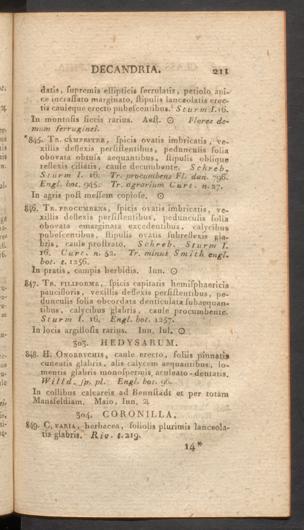 DECANDRIA. 211
datis, supremis ellipticis serrulatis, petiolo api-
ce incrassato marginato, stipulis lanceolatis erec-
tis cauleque erecto pubescentibus. Sturm I. 16.
In montosis siccis rarius. Aust. ☉ Flores de-
mum ferruginei.
*845. TR. CAMPESTRE, spicis ovatis imbricatis, ve-
xillis deflexis persistentibus, pedunculis folia
obovata obtusa aequantibus, stipulis oblique
reflexis ciliatis, caule decumbente. Schreb.
Sturm I. 16. Tr. procumbens Fl. dan. 796.
Engl. bot. 945. Tr. agrarium Curt. n. 27.
In agris post messem copiose. ☉
846. TR. PROCUMBENS, spicis ovatis imbricatis, ve-
xillis deflexis persistentibus, pedunculis folia
obovata emarginata excedentibus, calycibus
pubescentibus, stipulis ovatis subreflexis gla-
bris, caule prostrato. Schreb. Sturm I.
16. Curt. n. 52. Tr. minus Smith engl.
bot. t. 1256.
In pratis, campis herbidis. Iun. ☉
847. TR. FILIFORME, spicis capitatis hemisphaericis
paucifloris, vexillis deflexis persistentibus, pe-
dunculis folia obcordata denticulata subaequan-
tibus, calycibus glabris, caule procumbente.
Sturm I. 16. Engl. bot. 1257.
In locis argillosis rarius. Iun. Iul. ☉
303. HEDYSARUM.
848. H. ONOBRYCHIS, caule erecto, foliis pinnatis
cuneatis glabris, alis calycem aequantibus, lo-
mentis glabris monospermis, aculeato-dentatis.
Willd. sp. pl. Engl. bot. 96.
In collibus calcareis ad Bennstädt et per totam
Mansfeldiam. Maio, Iun. ♃
304. CORONILLA.
849. C. VARIA, herbacea, foliolis plurimis lanceola-
tis glabris. Riv. t. 219.
14*